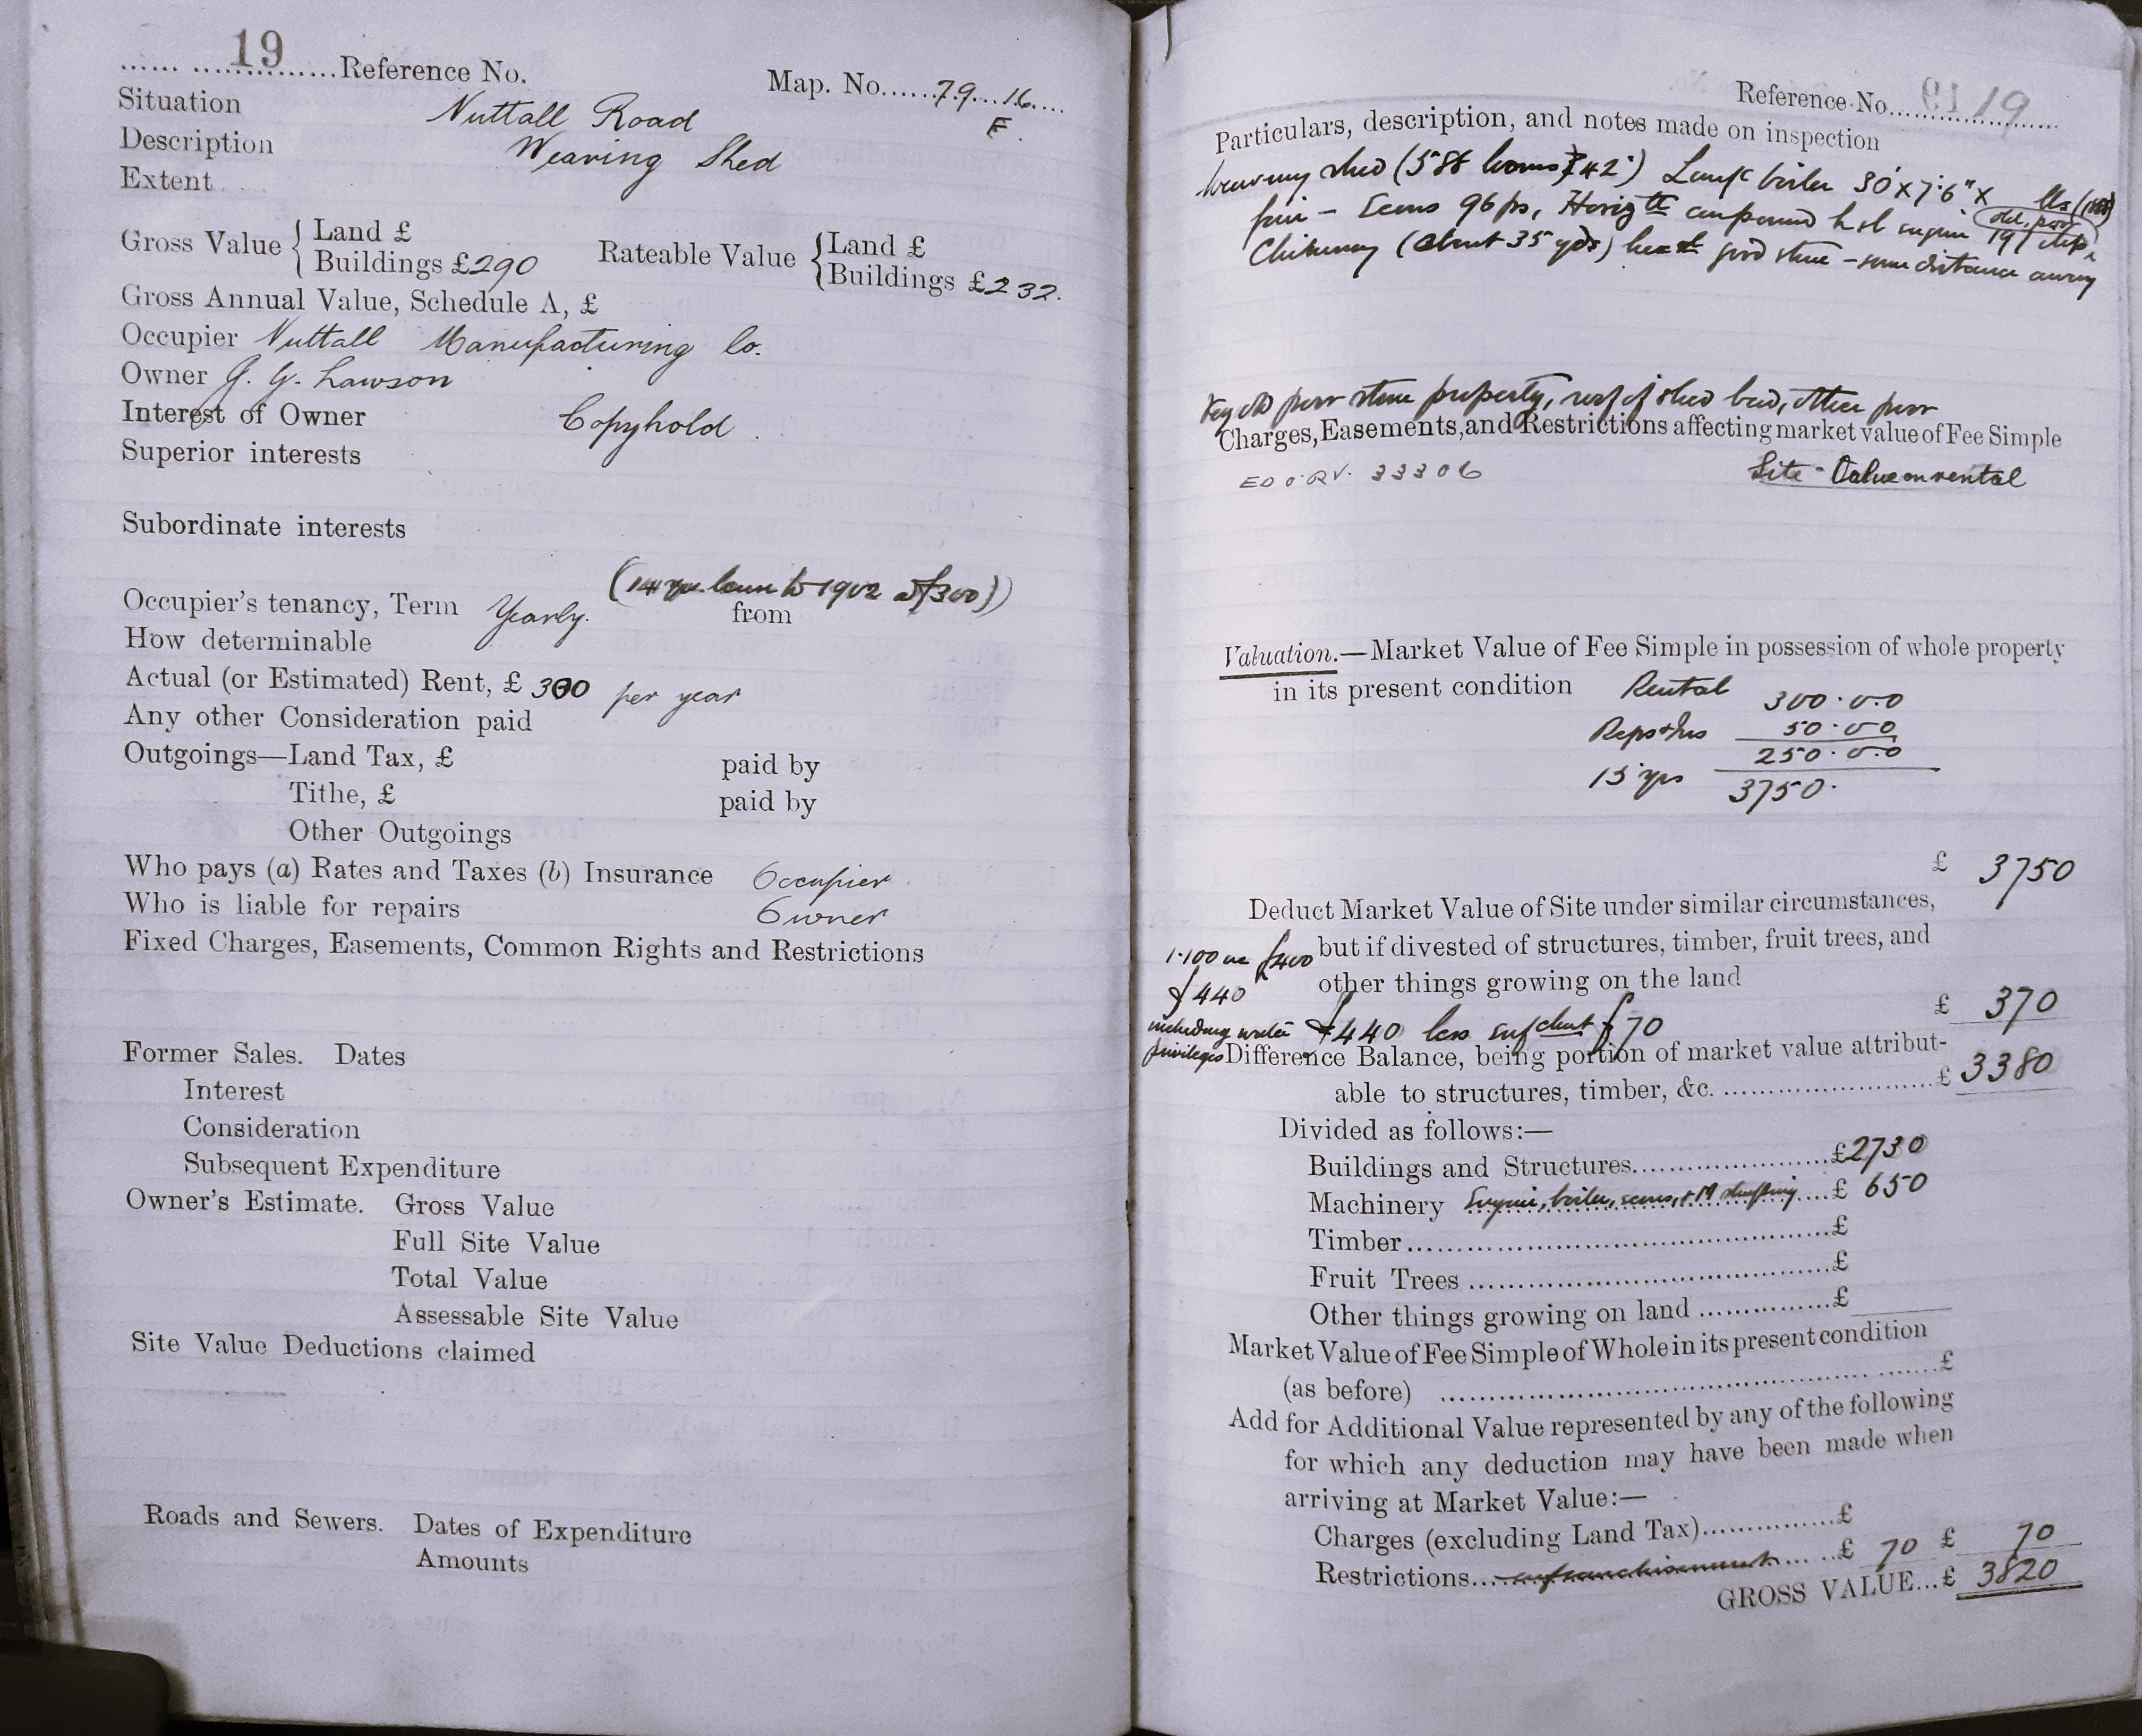 19
Reference No. Map. No. 79 16
F.
Situation Nuttall Road
Description Weaving Shed
Extent
Gross Value { Land £
Buildings £290
Rateable Value { Land £
Buildings £232.
Gross Annual Value, Schedule A, £
Occupier Nuttall Manufacturing Co.
Owner J. Y. Lawson
Interest of Owner Copyhold.
Superior interests
Subordinate interests
to 1902 at £300)
Occupier's tenancy, Term Yearly. from
How determinable
Actual (or Estimated) Rent, £ 300 per year
Any other Consideration paid
Outgoings—Land Tax, £ paid by
Tithe, £ paid by
Other Outgoings
Who pays (a) Rates and Taxes (b) Insurance Occupier
Who is liable for repairs Owner
Fixed Charges, Easements, Common Rights and Restrictions
Former Sales. Dates
Interest
Consideration
Subsequent Expenditure
Owner's Estimate. Gross Value
Full Site Value
Total Value
Assessable Site Value
Site Value Deductions claimed
Roads and Sewers. Dates of Expenditure
Amounts
Reference No. 19
Particulars, description, and notes made on inspection
Weaving shed (588 looms Lancs boiler 30' x 7'.6" x lbs
fair - Econs 96 ps, Horiztl compound engine old, poor
Chimney (about 35 yds) good stone - some distance away
Very old poor stone property, roof of shed bad, other poor
Charges, Easements, and Restrictions affecting market value of Fee Simple
33306 Site - Value on rental
Valuation.—Market Value of Fee Simple in possession of whole property
in its present condition Rental 300.0.0
Reps & Ins 50.0.0
250.0.0
15 yrs 3750.
£ 3750
Deduct Market Value of Site under similar circumstances,
but if divested of structures, timber, fruit trees, and
other things growing on the land
1.100 ac £400
£440
including water
privileges
£440 less enfchmt £70 £ 370
Difference Balance, being portion of market value attribut-
able to structures, timber, &c. £ 3380
Divided as follows:—
Buildings and Structures £2730
Machinery Engine, boiler, econs, & M shafting £ 650
Timber £
Fruit Trees £
Other things growing on land £
Market Value of Fee Simple of Whole in its present condition
(as before) £
Add for Additional Value represented by any of the following
for which any deduction may have been made when
arriving at Market Value:—
Charges (excluding Land Tax) £
Restrictions enfranchisement £ 70 £ 70
GROSS VALUE...£ 3820